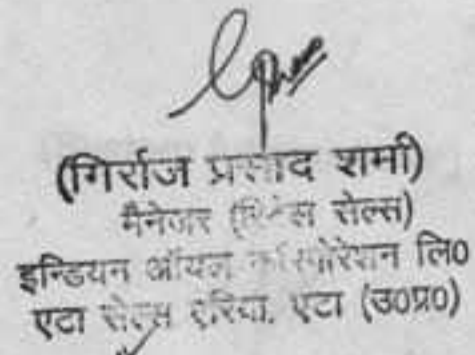 (गिर्राज प्रसाद शर्मा)
मैनेजर (रिटेल सेल्स)
इन्डियन ऑयल कॉरपोरेशन लि0
एटा सेल्स एरिया, एटा (उ0प्र0)